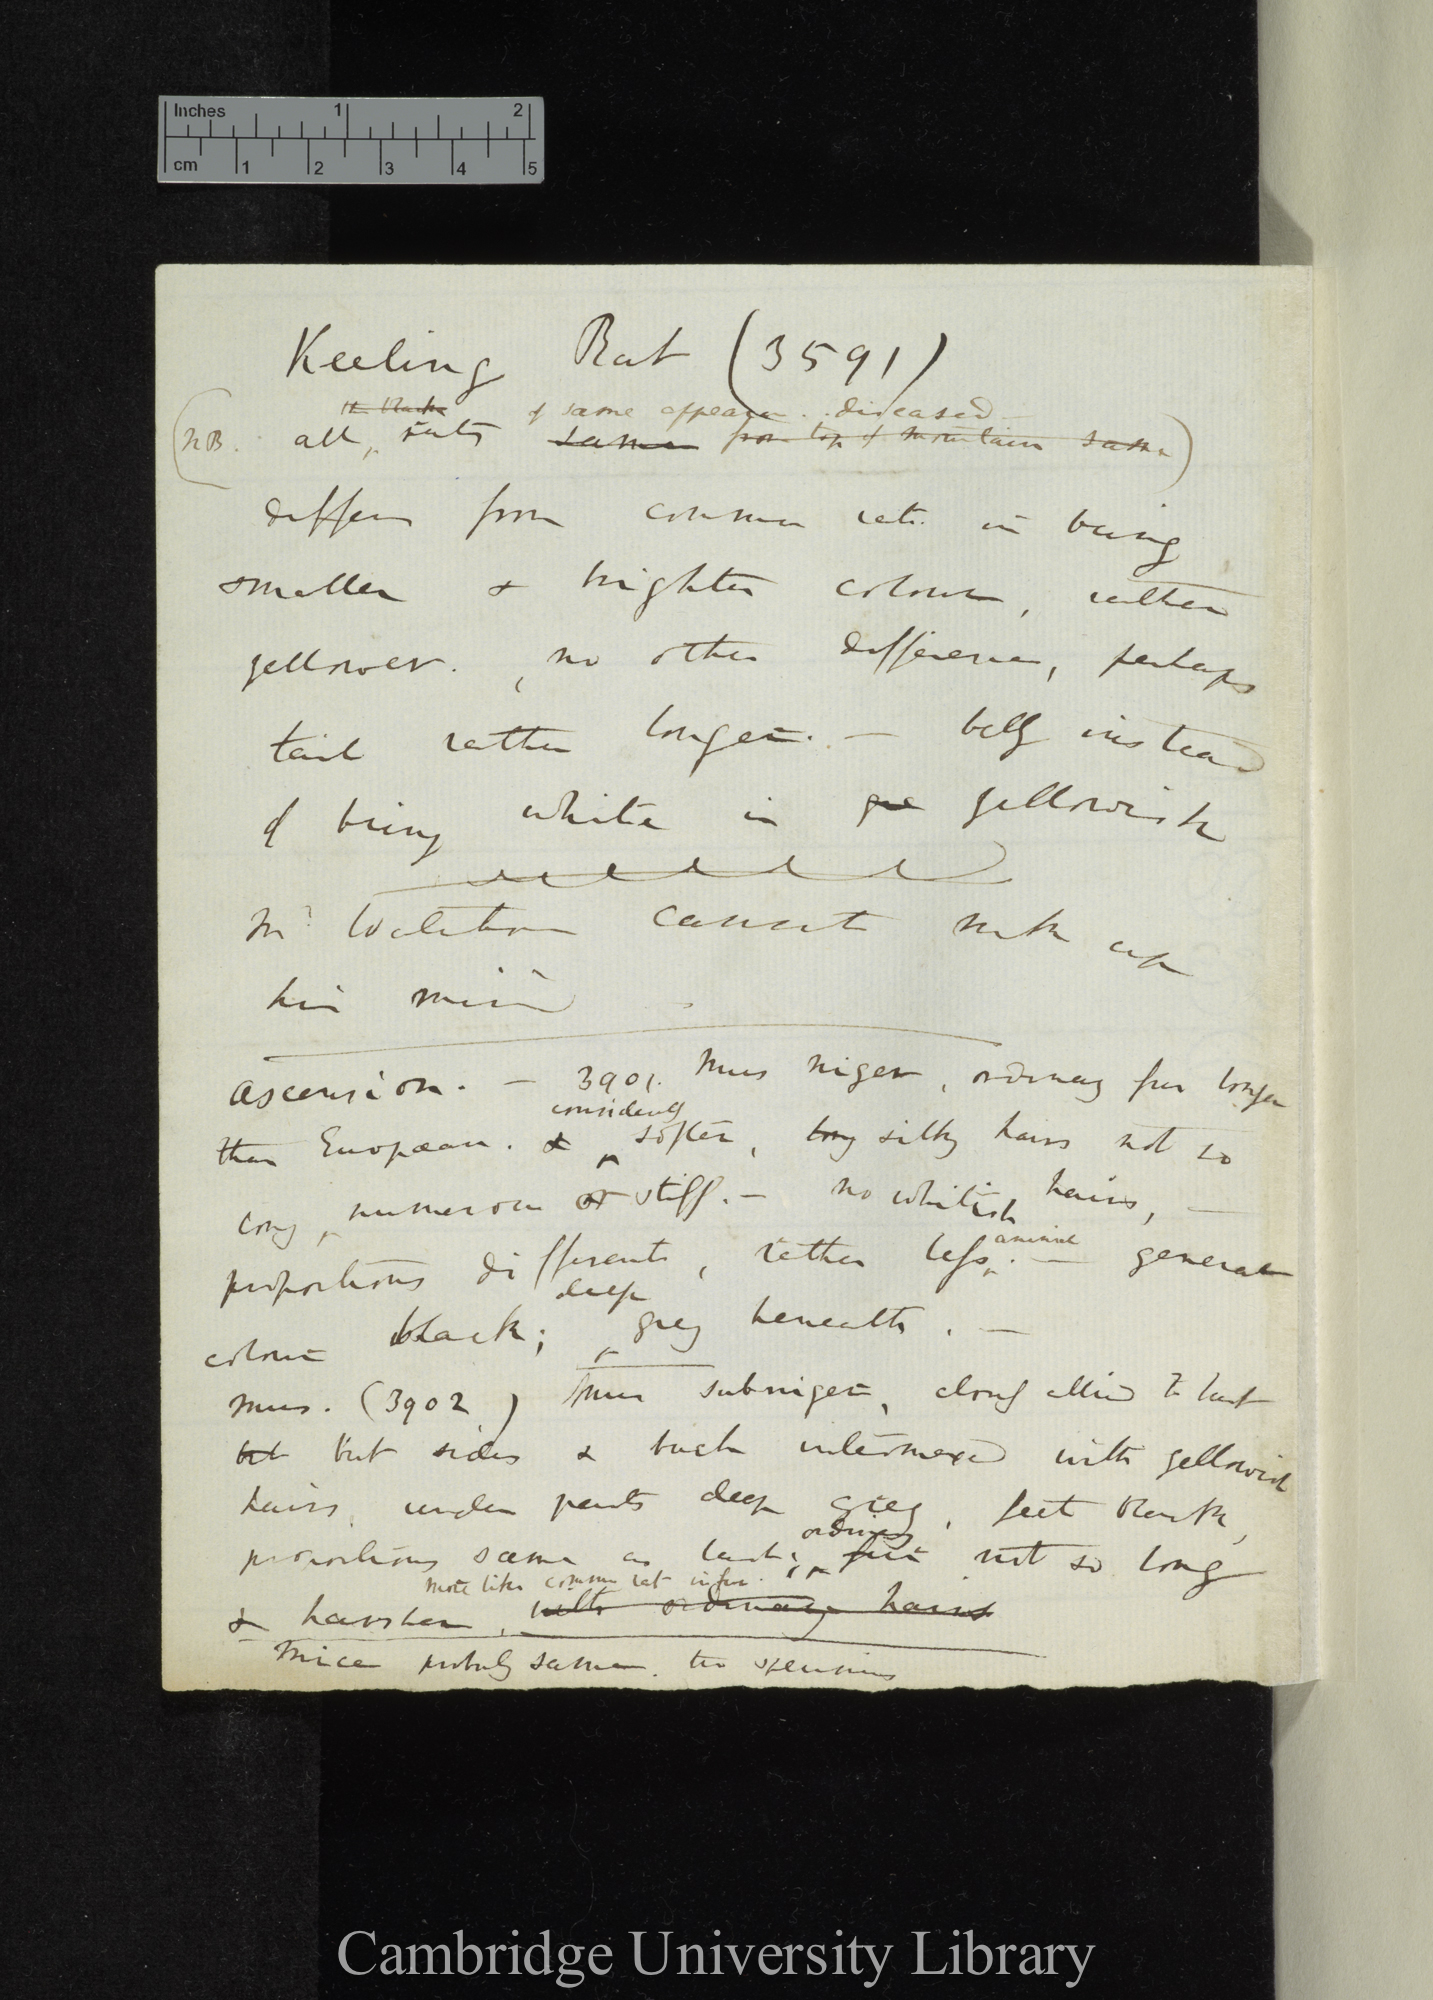 Inches 1 2
cm 1 2 3 4 5
Keeling Rat (3591)
the black of same appearan.. diseased —
(NB. all, rats same from top of mountain same)
differs from common rats in being
smaller & brighter colour, rather
yellower. , no other difference, perhaps
tail rather longer. — belly instead
of being white is gre yellowish
Mr cannot make up
his mind
Ascension. — 3901. Mus niger, ordinary fur longer
considerably
than European. & softer, long silky hairs not so
long, numerous or stiff. — no whitish hairs, —
proportions different, rather less animal. — general
deep
colour black; grey beneath. —
Mus. (3902) Mus subniger, closely allied to last
but but sides & back intermixed with yellowish
hairs, under parts deep grey, feet black,
ordinary
proportions same as last; fur not so long
more like common rat in fur.
& harsher, with ordinary hairs
Mice probably same. two specimens
Cambridge University Library